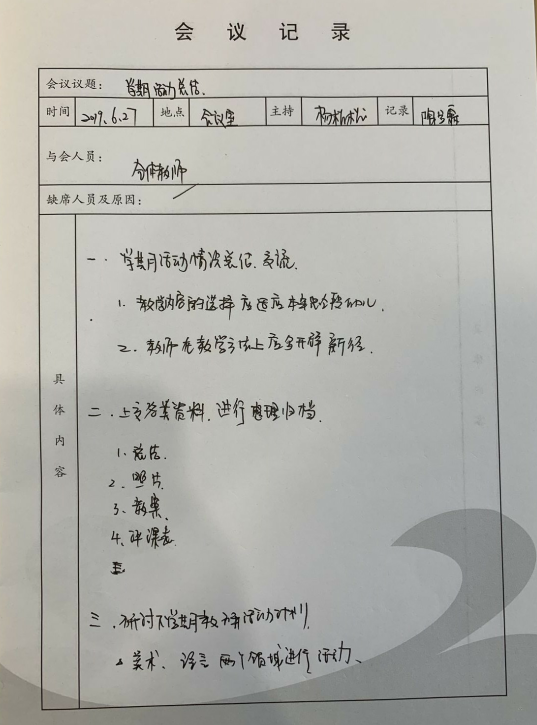 会议记录
会议议题： 学期活动总结.
时间 2019.6.27 地点 会议室 主持 杨 记录 陶
与会人员： 全体教师
缺席人员及原因：
具体内容
一. 学期活动情况总结.交流.
1. 教学内容的选择应适应本年龄段幼儿.
2. 教师在教学方法上应多开辟新径.
二. 上交各类资料.进行整理归档.
1. 总结.
2. 照片.
3、教案.
4、评课表.
三.研讨下学期教研活动计划.
美术、语言两个领域进行活动、